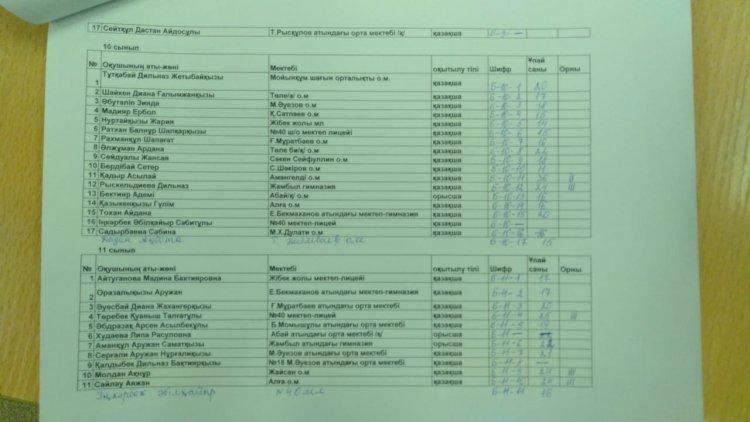 17 Сейтқұл Дастан Айдосұлы Т.Рысқұлов атындағы орта мектебі /қ/ қазақша Б-9- —
10 сынып
№ Оқушының аты-жөні Мектебі оқытылу тілі Шифр Ұпай саны Орны
1 Тұтқабай Дильназ Жетыбайқызы Мойынқұм шағын орталықты о.м. қазақша Б-10-1 20
2 Шайкен Диана Ғалымжанқызы Төле/а/ о.м қазақша Б-10-2 17
3 Әбуталіп Зияда М.Әуезов о.м қазақша Б-10-3 18
4 Мадияр Ербол Қ.Сатпаев о.м қазақша Б-10-4
5 Нуртайқызы Жария Жібек жолы мл қазақша Б-10-5
6 Ратхан Балнұр Шалқарқызы №40 ш/о мектеп лицейі қазақша Б-10-6
7 Рахманқұл Шапағат Ғ.Мұратбаев о.м қазақша Б-10-7 16
8 Әлжұман Ардана Төле би/қ/ о.м қазақша Б-10-8
9 Сейдуалы Жансая Сәкен Сейфуллин о.м қазақша Б-10-9 18
10 Бердібай Сетер С.Шәкіров о.м қазақша Б-10-10 11
11 Қадыр Асылай Амангелді о.м қазақша Б-10-11 26 ІІ
12 Рыскельдиева Дильназ Жамбыл гимназия қазақша Б-10-12 24 ІІІ
13 Бектияр Адемі Абай/қ/ о.м орысша Б-10-13 16
14 Қазыкенқызы Гүлім Алға о.м қазақша Б-10-14 16
15 Тохан Айдана Е.Бекмаханов атындағы мектеп-гимназия қазақша Б-10-15 20
16 Іңкәрбек Әбілқайыр Сабитұлы №40 мектеп-лицей қазақша Б-10- —
17 Садырбаева Сабина М.Х.Дулати о.м қазақша Б-10-16
о.м Б-10-17 15
11 сынып
№ Оқушының аты-жөні Мектебі оқытылу тілі Шифр Ұпай саны Орны
1 Айтуганова Мадина Бахтияровна Жібек жолы мектеп-лицейі қазақша Б-11-1 18
2 Оразалықызы Аружан Е.Бекмаханов атындағы мектеп-гимназия қазақша Б-11-2 17
3 Әуесбай Диана Жахангерқызы Ғ.Мұратбаев атындағы орта мектебі қазақша Б-11-3 20
4 Төребек Қуаныш Талғатұлы №40 мектеп-лицей қазақша Б-11-4 25 ІІІ
5 Әбдразақ Арсен Асылбекұлы Б.Момышұлы атындағы орта мектебі қазақша Б-11-5
6 Худаева Липа Расуловна Абай атындағы орта мектебі /қ/ орысша Б-11- —
7 Аманқұл Аружан Саматқызы Жамбыл атындағы гимназия орысша Б-11-6 22
8 Серғали Аружан Нұрғалиқызы М.Әуезов атындағы орта мектебі қазақша Б-11-7 21
9 Қалдыбек Дильназ Бақтиярқызы №18 М.Әуезов атындағы орта мектебі қазақша Б-11-8 —
10 Молдан Ақнұр Жайсан о.м қазақша Б-11-9 24 ІІІ
11 Сайлау Аяжан Алға о.м қазақша Б-11-10 24 ІІІ
Іңкәрбек Әбілқайыр №40 мл Б-11-11 16